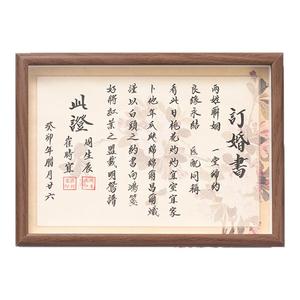 訂婚書
兩姓聯姻 一堂締約
良緣永結 匹配同稱
看此日桃花灼灼宜室宜家
卜他年瓜瓞綿綿爾昌爾熾
謹以白頭之約書向鴻箋
好將紅葉之盟載明鴛譜
此證
周生辰
崔時宜
癸卯年臘月廿六